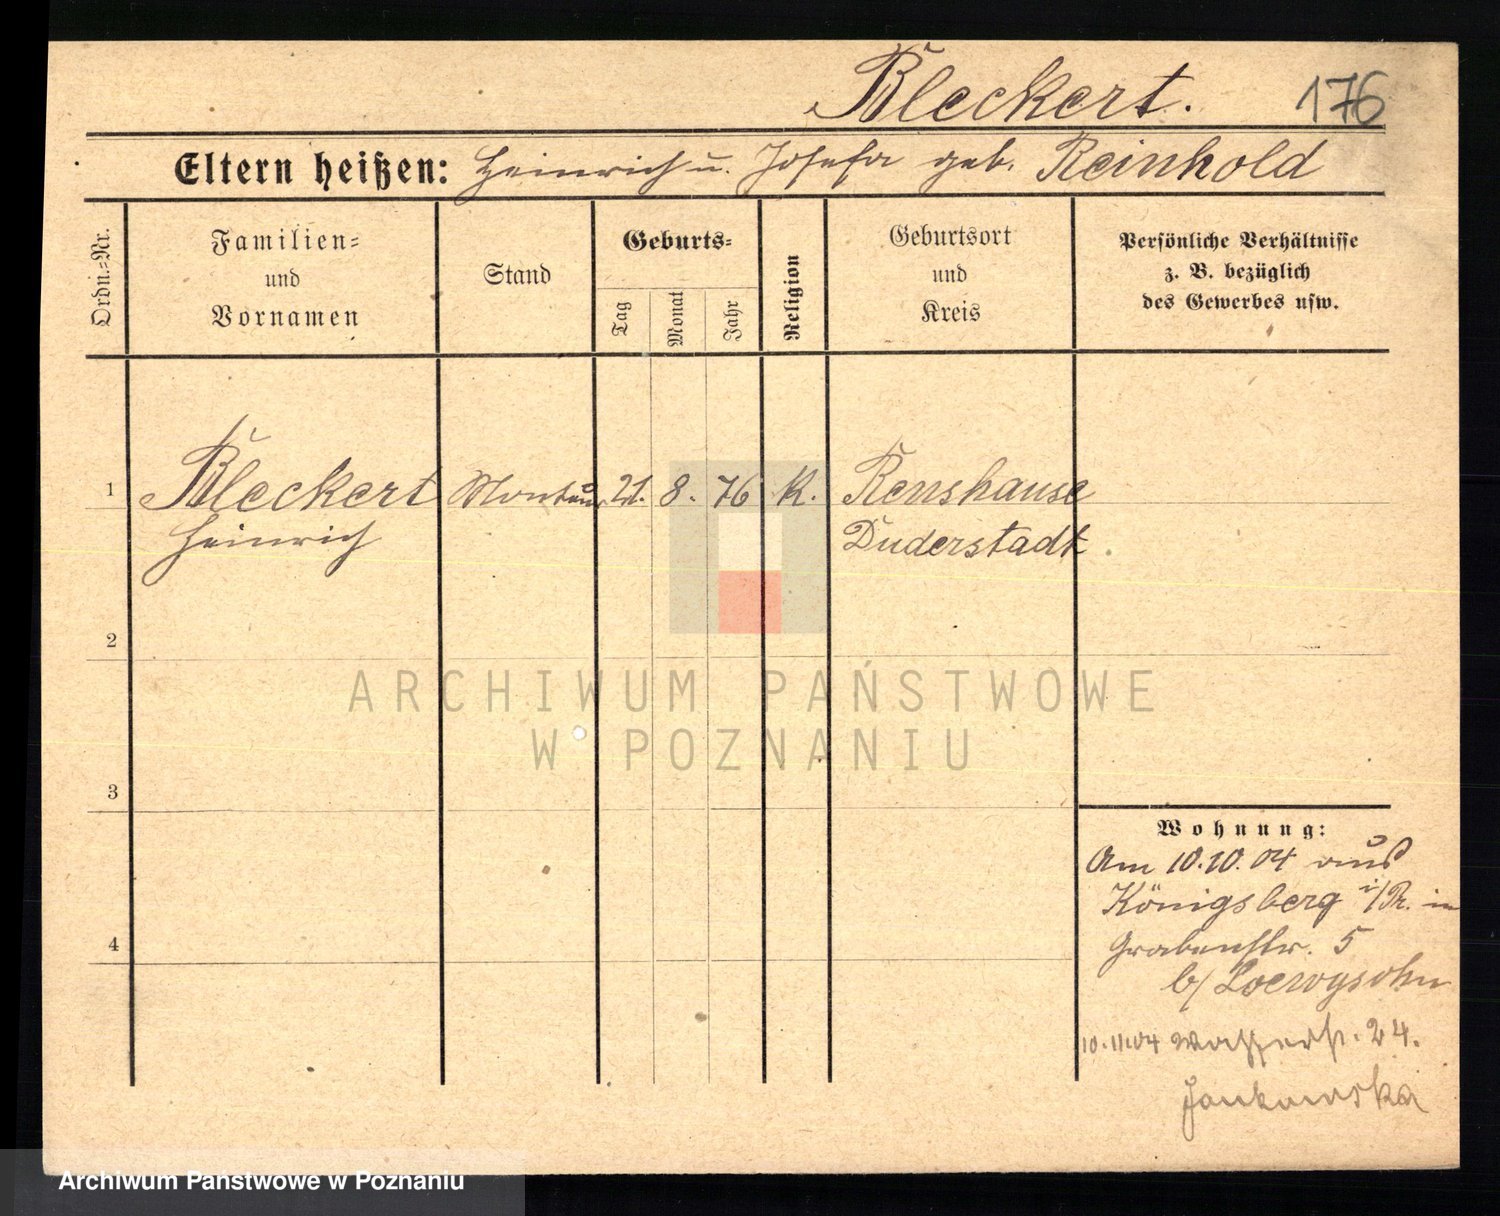 Bleckert. 176
Eltern heißen: Heinrich u. Josefa geb. Reinhold
Ordn.-Nr.
Familien-
und
Vornamen
Stand
Geburts-
Tag
Monat
Jahr
Religion
Geburtsort
und
Kreis
Persönliche Verhältnisse
z. B. bezüglich
des Gewerbes usw.
1 Bleckert Monteur 21. 8. 76 K. Renshause
Heinrich Duderstadt
2
3
4
Wohnung:
Am 10.10.04 aus
Königsberg i/Pr. in
Grabenstr. 5
b/ Loewysohn
10.11.04 Wasserstr. 24.
Jankowska
ARCHIWUM PAŃSTWOWE
W POZNANIU
Archiwum Państwowe w Poznaniu